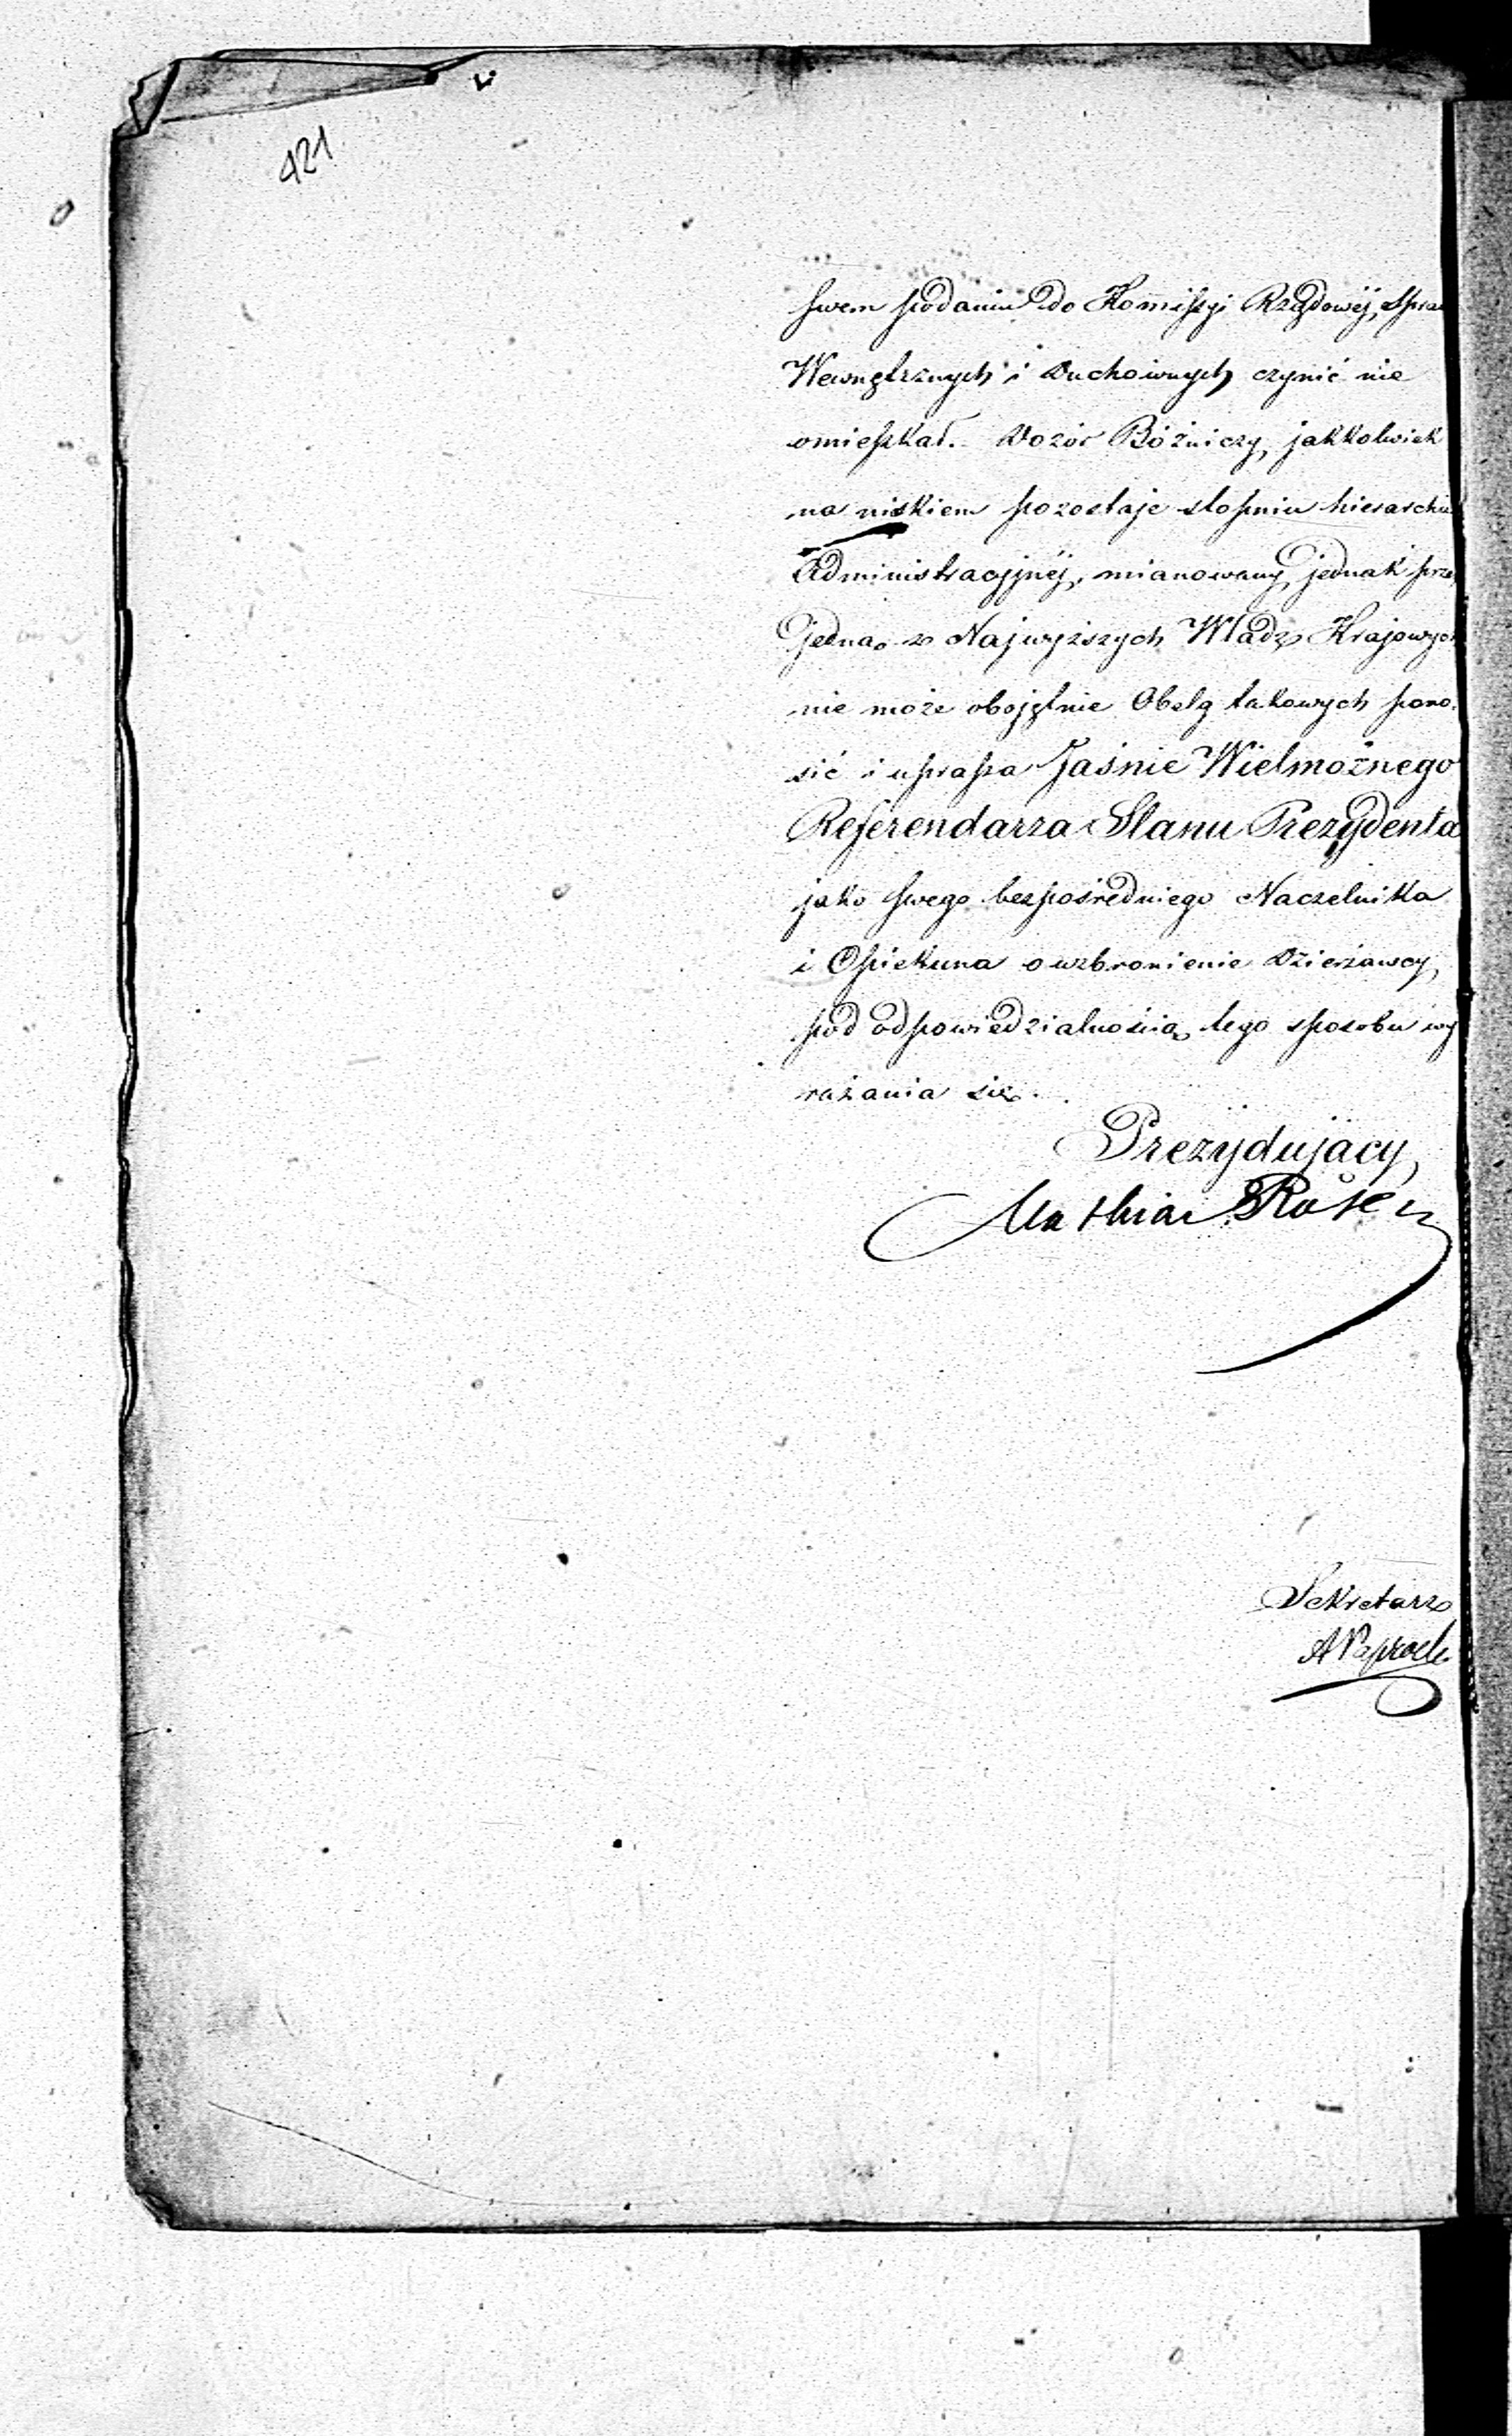 421
swem podaniu do Komissyi Rządowéj, Spraw
Wewnętrznych i Duchownych czynić nie
omieszkał. Dozór Bóźniczy, jakkolwiek
na niskiem pozostaje stopniu hierarchii
Administracyjnéj, mianowany jednak przez
jedną z Najwyższych Władz Krajowych
nie może obojętnie Obelg takowych pono-
sić i uprasza Jaśnie Wielmożnego
Referendarza Stanu Prezydenta
jako swego bezpośredniego Naczelnika
i Opiekuna o wzbronienie Dzierżawcy,
pod odpowiedzialnością tego sposobu wy
rażania się.
Prezydujący,
Mathias Rosen
Sekretarz